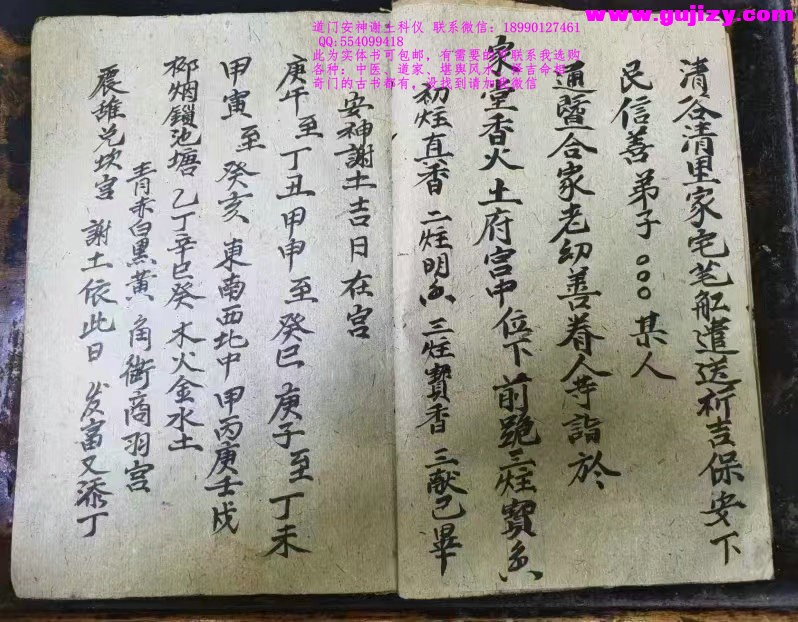 www.gujizy.com
道门安神谢土科仪 联系微信：18990127461
QQ:554099418
此为实体书可包邮，有需要的可联系我选购
各种：中医、道家、堪舆风水、择吉命相
奇门的古书都有，没找到请加我微信
清谷清里家宅芼舡遣送祈吉保安下
民信善弟子○○○某人
通暨合家老幼善眷人等詣於
家堂香火土府宫中位下前跪三炷寶香
初炷真香 二炷明香 三炷寶香 三献已畢
安神謝土吉日在宫
庚午至丁丑 甲申至癸巳 庚子至丁未
甲寅至癸亥 東南西北中 甲丙庚壬戊
柳烟鎖池塘 乙丁辛巳癸 木火金水土
青赤白黑黄 角徵商羽宫
震離兑坎宫 謝土依此日 发富又添丁